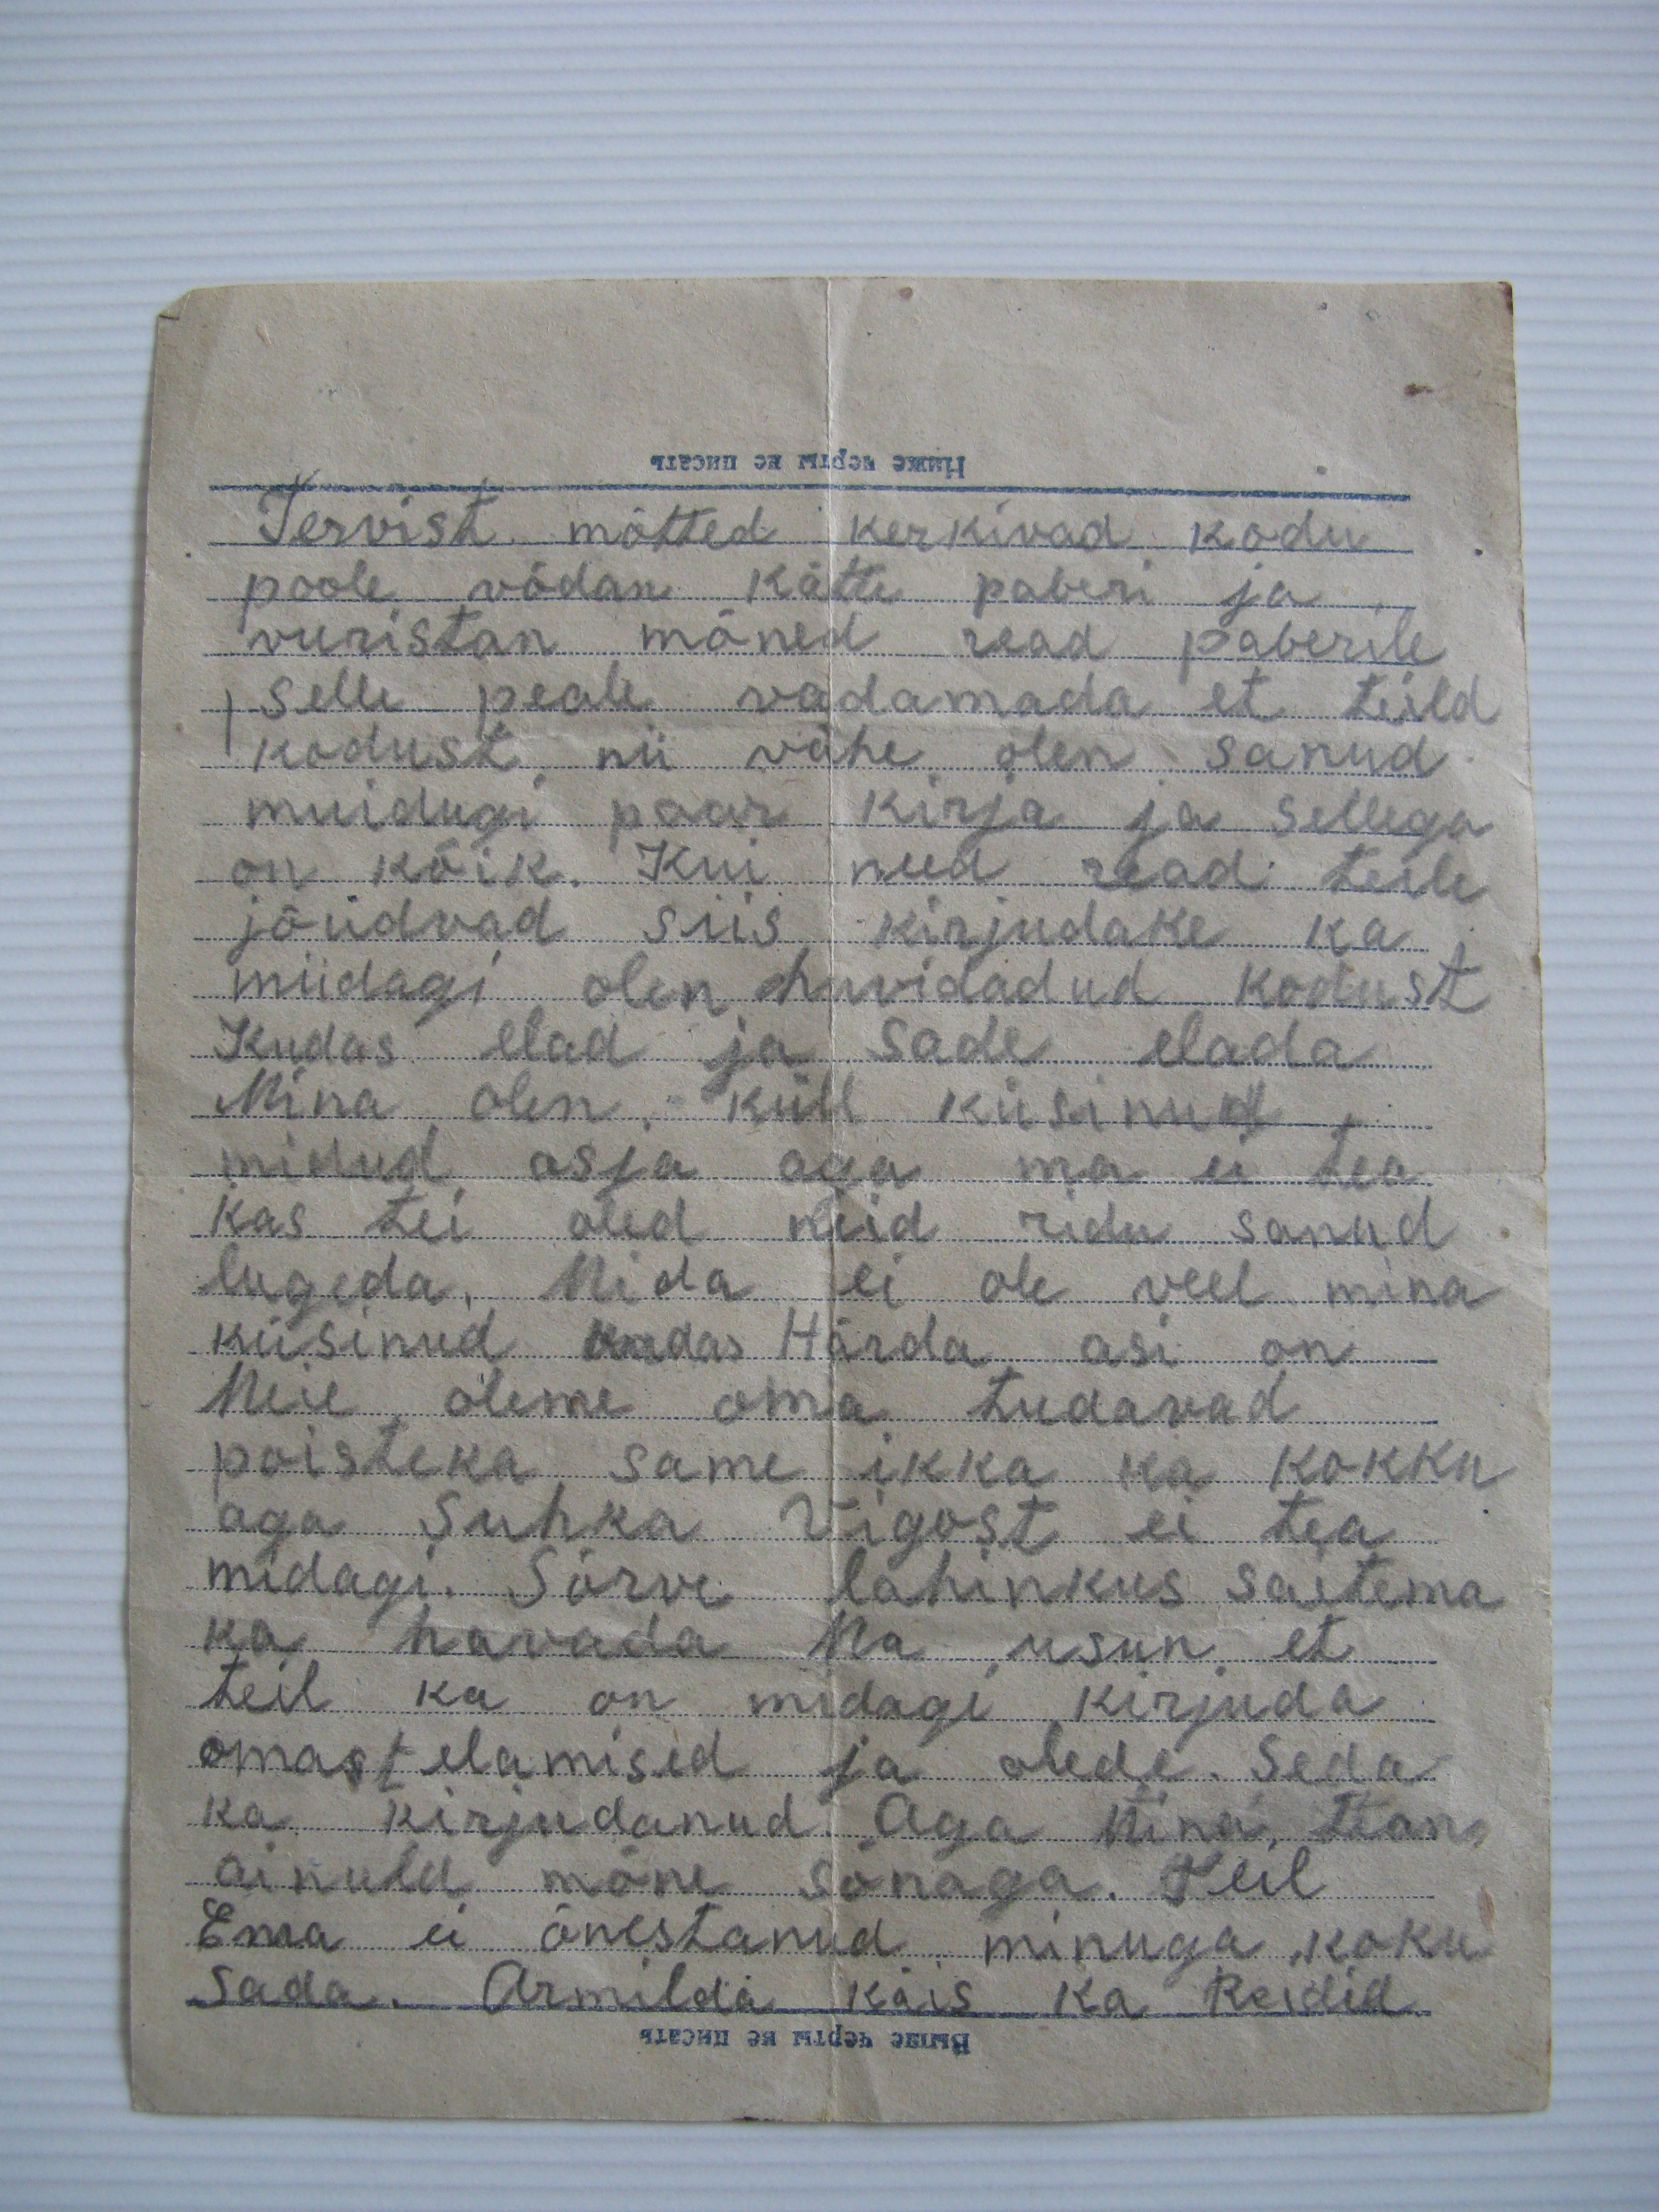 Ниже черты не писать
Tervist mõtted kerkivad kodu
poole võdan kätte paberi ja
vuristan mõned read paberile
selle peale vadamada et teild
kodust nii vähe olen sanud
muidugi paar kirja ja sellega
on kõik. Kui need read teile
jõudvad siis kirjudake ka
miidagi olen huvidadud kodust
Kudas elad ja sade elada
Mina olen küll küsinud
midud asja aga ma ei tea
kas tei oled neid ridu sanud
lugeda. Mida ei ole veel mina
küsinud kudas Härda asi on
Meie oleme oma tudavad
poisteka same ikka ka kokku
aga Suhka Vigost ei tea
midagi. Sõrve lahinkus saitema
ka havada Ma usun et
teil ka on midagi kirjuda
omast elamised ja olede. Seda
ka kirjudanud Aga Mina
ainuld mõne sõnaga. Teil
Ema ei õnestanud minuga koku
sada. Armilda käis ka Reidid
Выше черты не писать